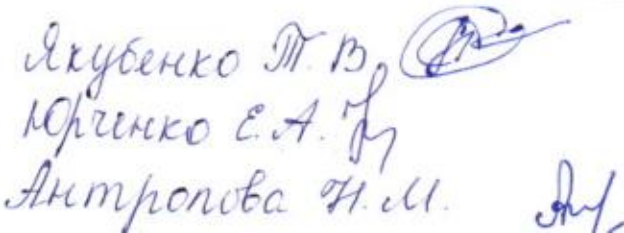 Якубенко Т. В.
Юрченко Е. А.
Антропова Н. М.